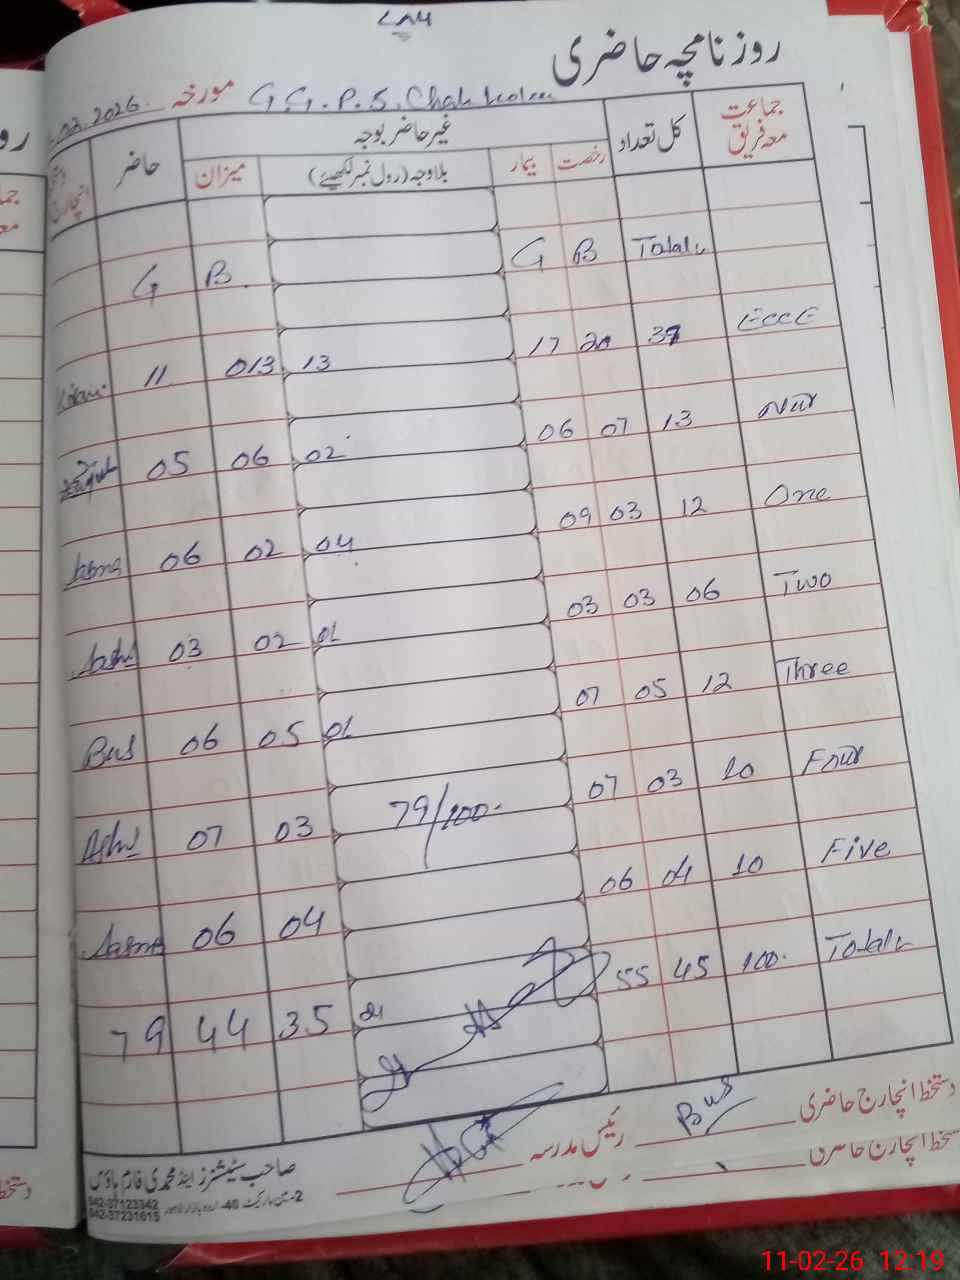 روزنامچہ حاضری
مورخہ G.G.P.S. Chak
جماعت معہ فریق کل تعداد غیر حاضر بوجہ حاضر
رخصت بیمار بلاوجہ (رول نمبر لکھیئے) میزان
G B G B Total
11 013 13 17 20 37 ECCE
05 06 02 06 07 13 Nur
Asma 06 02 04 09 03 12 One
03 02 01 03 03 06 Two
Bus 06 05 01 07 05 12 Three
07 03 79/100 07 03 10 Four
Aasma 06 04 06 04 10 Five
79 44 35 21 55 45 100 Total
دستخط انچارج حاضری Bus رئیس مدرسہ
صاحب سٹیشنرز اینڈ محمدی فارم ہاؤس
2-مین مارکیٹ 40- اردو بازار لاہور 042-37123342
042-37231615
11-02-26 12:19